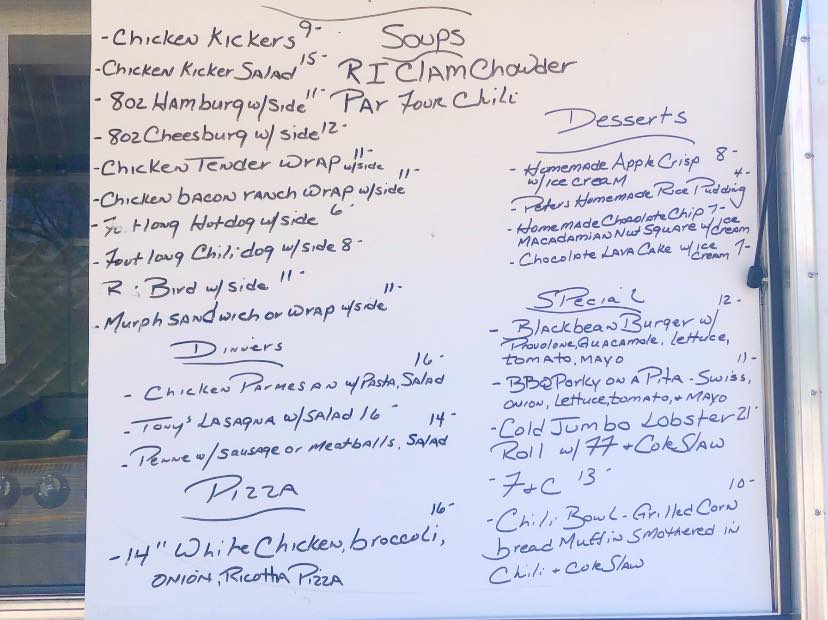 - Chicken Kickers 9-
- Chicken Kicker Salad 15-
- 8oz Hamburg w/side 11-
- 8oz Cheesburg w/ side 12-
- Chicken Tender Wrap w/side 11-
- Chicken bacon ranch wrap w/side 11-
long Hotdog w/side 6-
- Foot long Chili dog w/side 8-
R Bird w/side 11-
- Murph Sandwich or wrap w/side 11-
Dinners
- Chicken Parmesan w/Pasta, Salad 16-
- Tony's Lasagna w/Salad 16-
- Penne w/ Sausage or Meatballs, Salad 14-
Pizza
16-
- 14" White Chicken, broccoli,
Onion, Ricotta Pizza
Soups
RI Clam Chowder
Par Four Chili
Desserts
- Homemade Apple Crisp 8-
w/ice cream
- Peters Homemade Rice Pudding 4-
- Homemade Chocolate Chip 7-
Macadamian Nut Square w/Ice Cream
- Chocolate Lava Cake w/Ice Cream 7-
Special
12-
- Blackbean Burger w/
Provolone, Guacamole, lettuce,
tomato, mayo
11-
- BBQ Porky on a Pita - Swiss,
onion, lettuce, tomato, + mayo
- Cold Jumbo Lobster 21-
Roll w/ FF + Coleslaw
- F+C 13-
10-
- Chili Bowl - Grilled Corn
bread Muffin Smothered in
Chili + Coleslaw